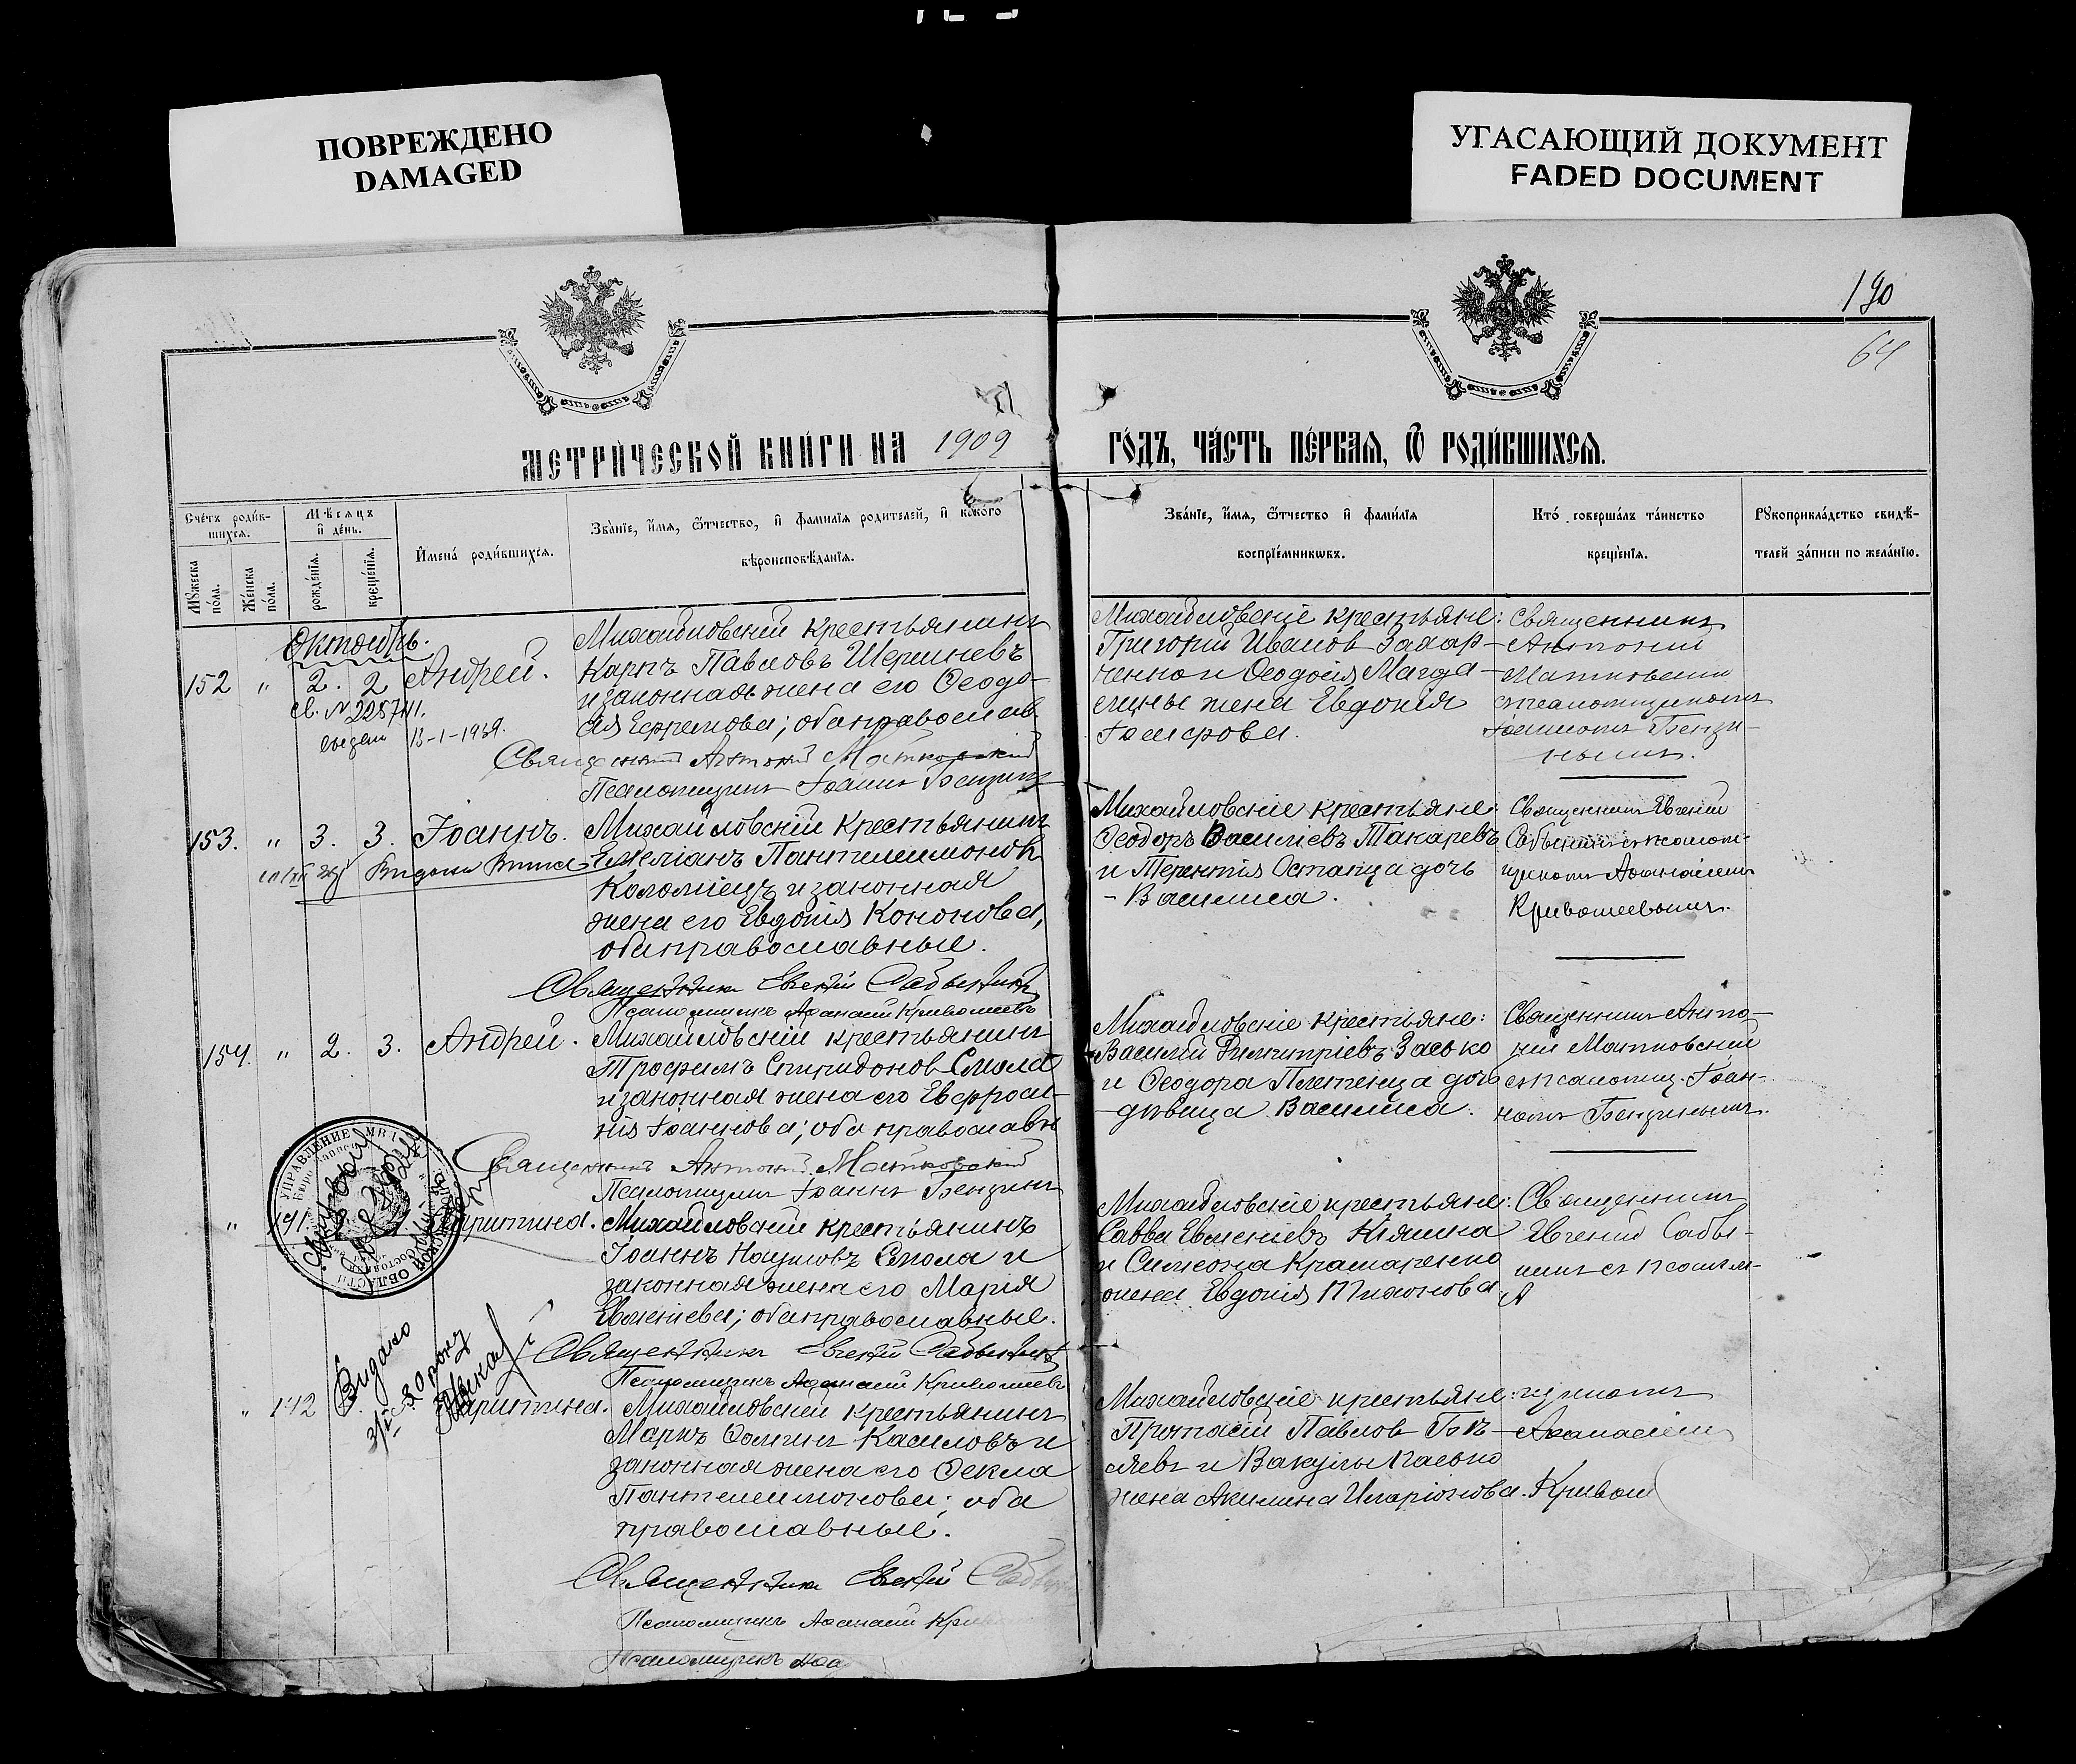 ПОВРЕЖДЕНО
DAMAGED
УГАСАЮЩИЙ ДОКУМЕНТ
FADED DOCUMENT
190
64
МЕТРИ́ЧЕСКОЙ КНИ́ГИ НА 1909
ГО́ДЪ, ЧА́СТЬ ПЕ́РВАЯ, Ѿ РОДИ́ВШИХСЯ.
Сче́тъ роди́в-
шихся.
Мꙋжеска по́ла.
Же́нска по́ла.
Мѣсяцъ и де́нь.
рожде́нія.
креще́нія.
Имена́ роди́вшихся.
Зва́ніе, и́мя, ѻтчество, и фами́лія родителей, и како́го
вѣроисповѣ́данія.
Зва́ніе, и́мя, ѻтчество и фами́лія
воспріе́мникѡвъ.
Кто̀ соверша́лъ та́инство
креще́нія.
Рꙋкоприкла́дство свидѣ́-
телей за́писи по жела́нію.
Октябрь.
152 " 2. 2 Андрей.
св. № 225741.
13-1-1939.
Михайловскій крестьянинъ
Карпъ Павловъ Шершневъ
и законная жена его Ѳеодо-
сія Ефремова; оба православ
Священникъ Антоній Матковскій
Псаломщикъ Іоаннъ Бензинъ
Михайловскіе крестьяне:
Григорій Иванов Захар-
ченко и Ѳеодосія
жена Евдокія
Священникъ
Антоній
Матковскій
съ псаломщикомъ
Іоанномъ Бензи-
нымъ.
153. " 3. 3. Іоаннъ.
Михайловскій Крестьянинъ
Емеліанъ Пантелеимоновъ
Коломіецъ и законная
жена его Евдокія Кононова,
оба православные.
Священникъ Евгеній Сабынинъ
Псаломщикъ Аѳанасій Кривошеевъ
Михайловскіе крестьяне
Ѳеодоръ Васильевъ Токаревъ
и Терентія Остапца дочь
- Василиса.
Священникъ Евгеній
Сабынинъ съ псалом-
щикомъ Аѳанасіемъ
Кривошеевымъ.
154. " 2. 3. Андрей.
Михайловскій крестьянинъ
Трофимъ Спиридонов Смола
и законная жена его Евфроси-
нія Іоаннова; оба православн
Священникъ Антоній Матковскій
Псаломщикъ Іоаннъ Бензинъ
Михайловскіе крестьяне:
Василій Димитріевъ Засько
и Ѳеодора Плетенца дочь
дѣвица Василиса.
Священникъ Анто-
ній Матковскій
съ псаломщ. Іоан-
номъ Бензинымъ.
УПРАВЛЕНИЕ
ОБЛАСТИ
" 141. Харитина.
Михайловскій крестьянинъ
Іоаннъ Наумовъ Смола и
законная жена его Марія
Евменіева; оба православные.
Священникъ Евгеній Сабынинъ
Псаломщикъ Аѳанасій Кривошеевъ
Михайловскіе крестьяне:
Савва Евменіевъ Кляшка
и Симеона Крамаренко
жена Евдокія
Священникъ
Евгеній Сабы-
нинъ съ псалом-
Видано
" 142 Харитина.
Михайловскій крестьянинъ
Маркъ Ѳоминъ Касиловъ и
законная жена его Ѳекла
Пантелеимонова; оба
православные.
Священникъ Евгеній
Псаломщикъ Аѳанасій
Псаломщикъ
Михайловскіе крестьяне:
Протасій Павлов
и Вакулы
жена Акилина Иларіонова.
щикомъ
Аѳанасіемъ
Кривош